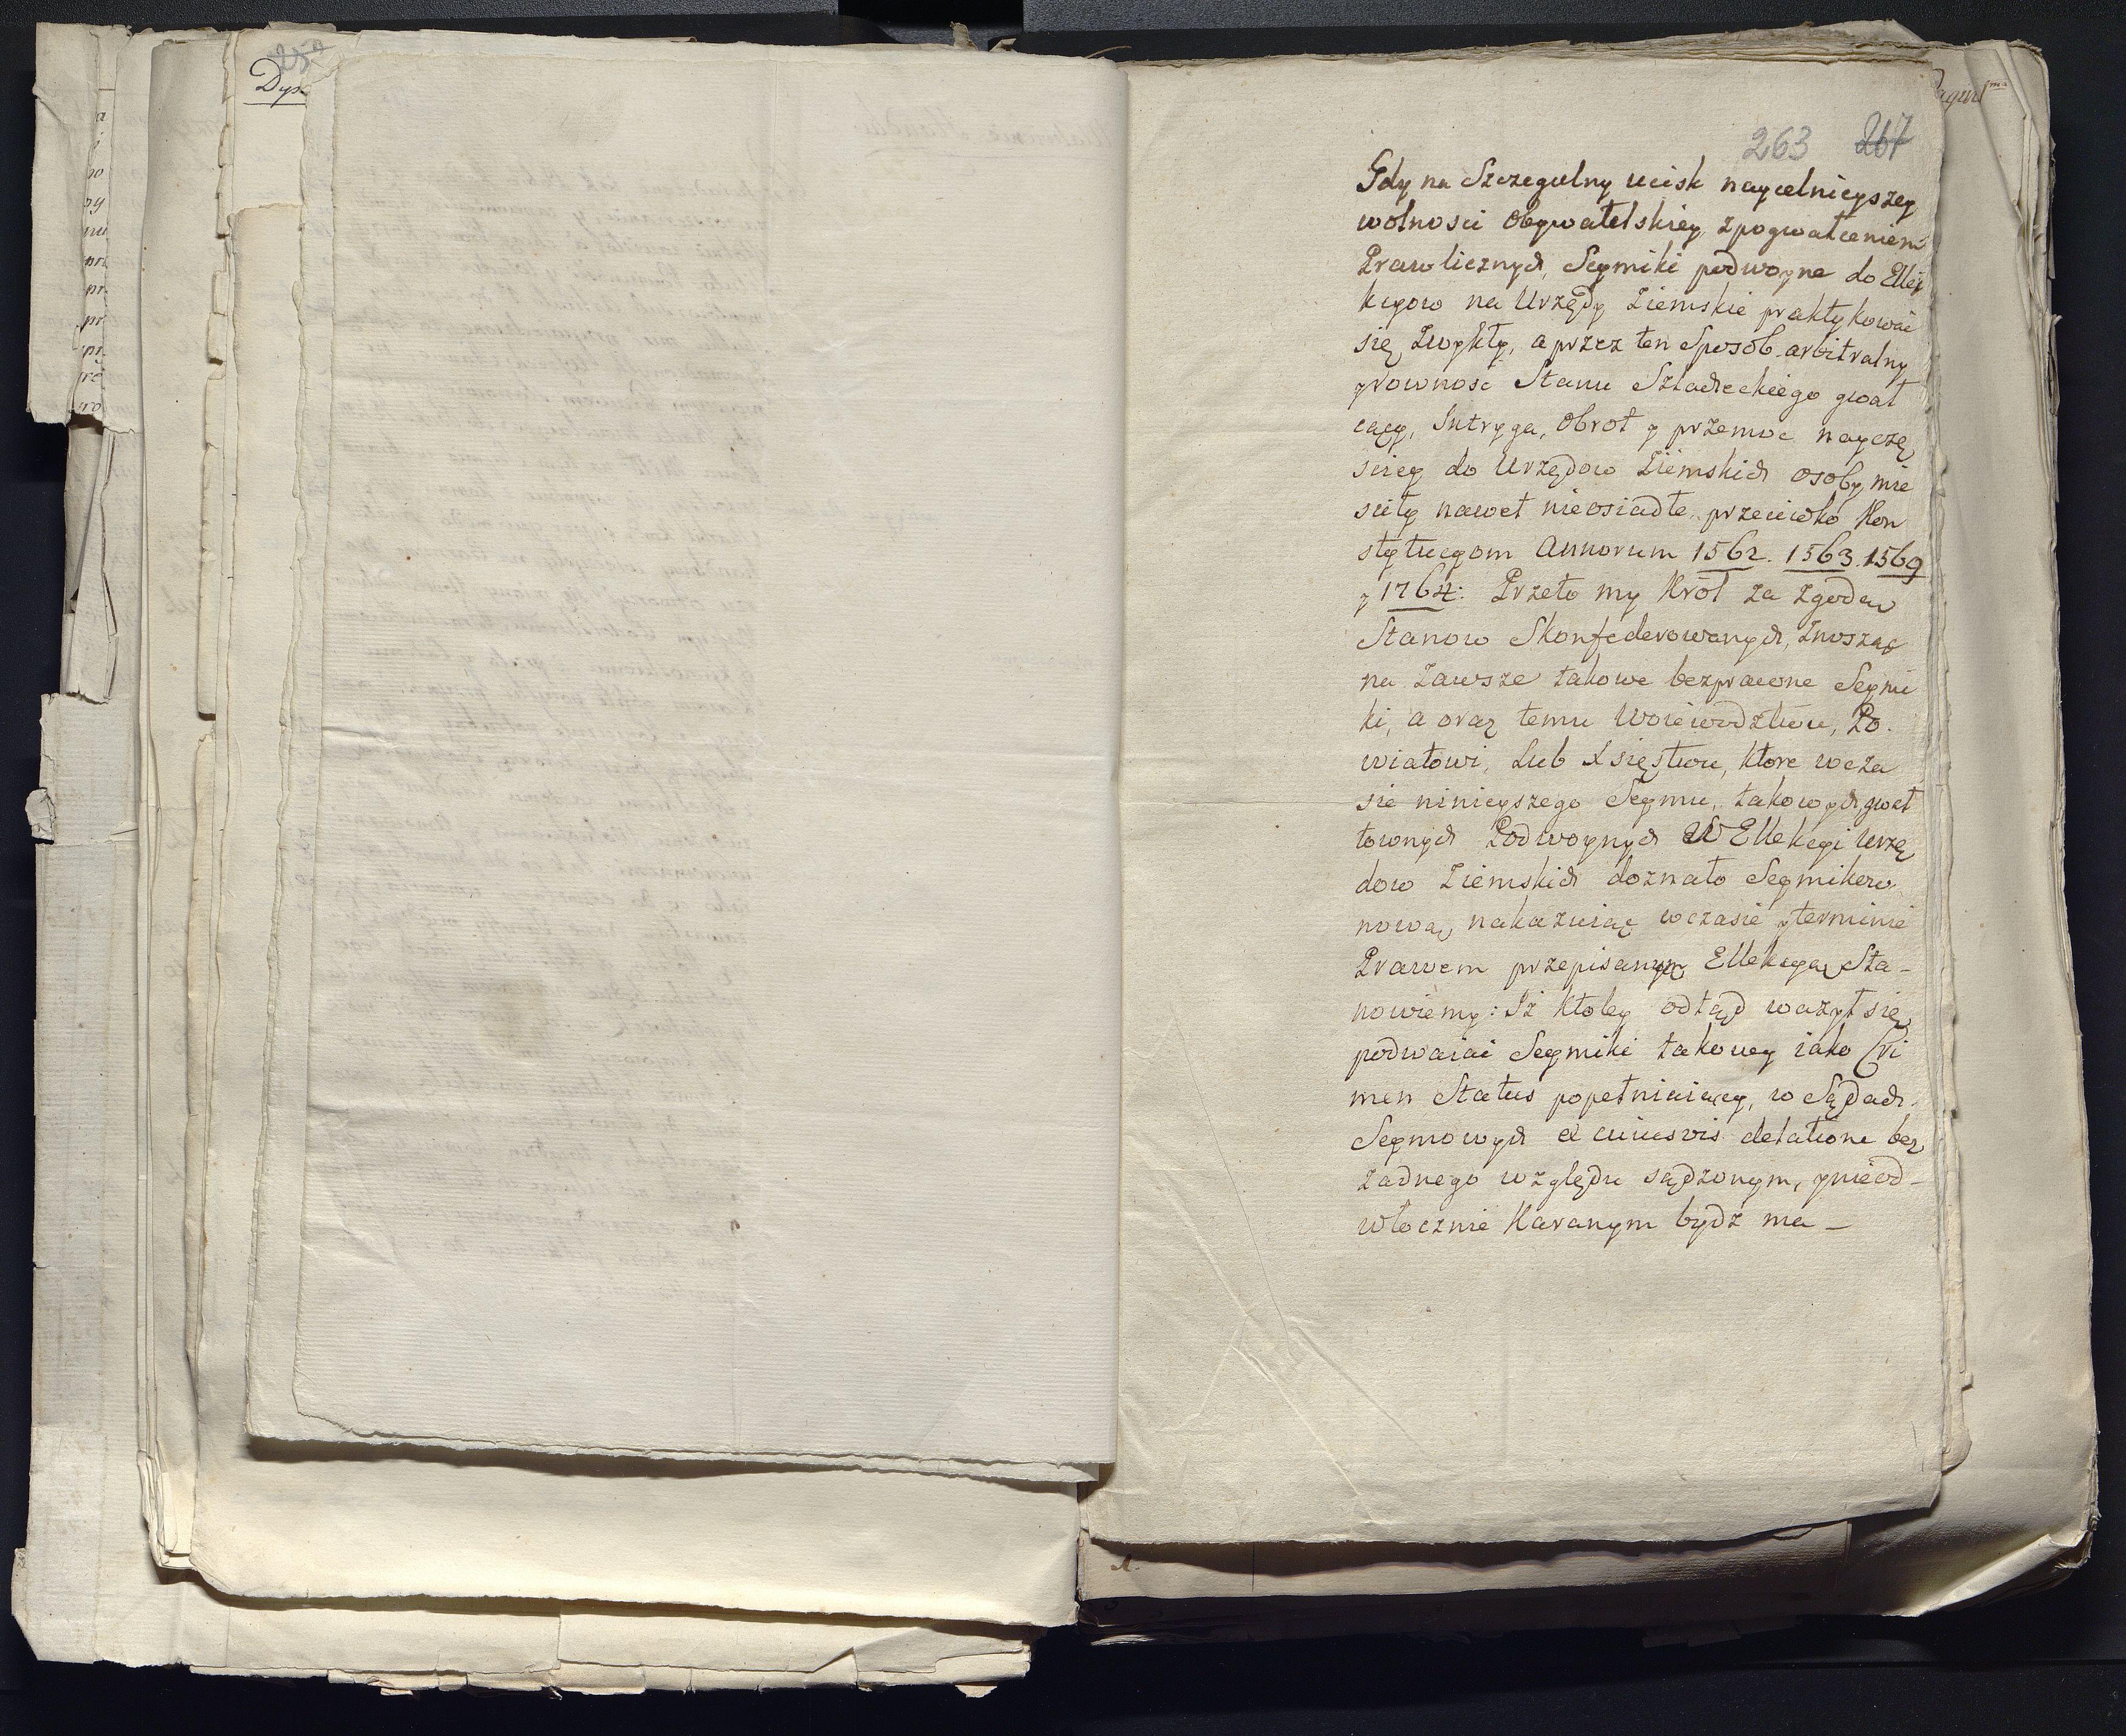 Dys
263 267
Gdy na Szczegulny ucisk naycelnieyszey
wolnosci Obywatelskiey, z pogwałceniem
Praw licznych, Seymiki podwoyne do Ellek
kcyow na Urzędy Ziemskie praktykować
się Zwykły, a przez ten Sposób arbitralny
y rownosc Stanu Szlacheckiego gwał
cący, Intryga, Obrot y przemoc nayczę
sciey do Urzędow Ziemskich osoby mie
sciły nawet nieosiadłe przeciwko Kon
stytucyom Annorum 1562. 1563. 1569
y 1764: Przeto my Król za zgodą
Stanow Skonfederowanych, Znosząc
na Zawsze takowe bezprawne Seymi
ki, a oraz temu Woiewodztwu, Po.
wiatowi, Lub Xsięstwu, ktore w cza
sie ninieyszego Seymu, takowych gwał
townych Podwoynych W Ellekcyi Urzę
dow Ziemskich doznało Seymikow
nową nakazuiąc w czasie y terminie
Prawem przepisanym Ellekcyą Sta-
nowiemy: Iż ktoby odtąd ważył się
podwaiać Seymiki takowy iako Cri
men Status popełniaiący, w Sądach
Seymowych ex cuiusvis delatione bez
żadnego względu sądzonym, y nieod-
włocznie Karanym bydz ma –